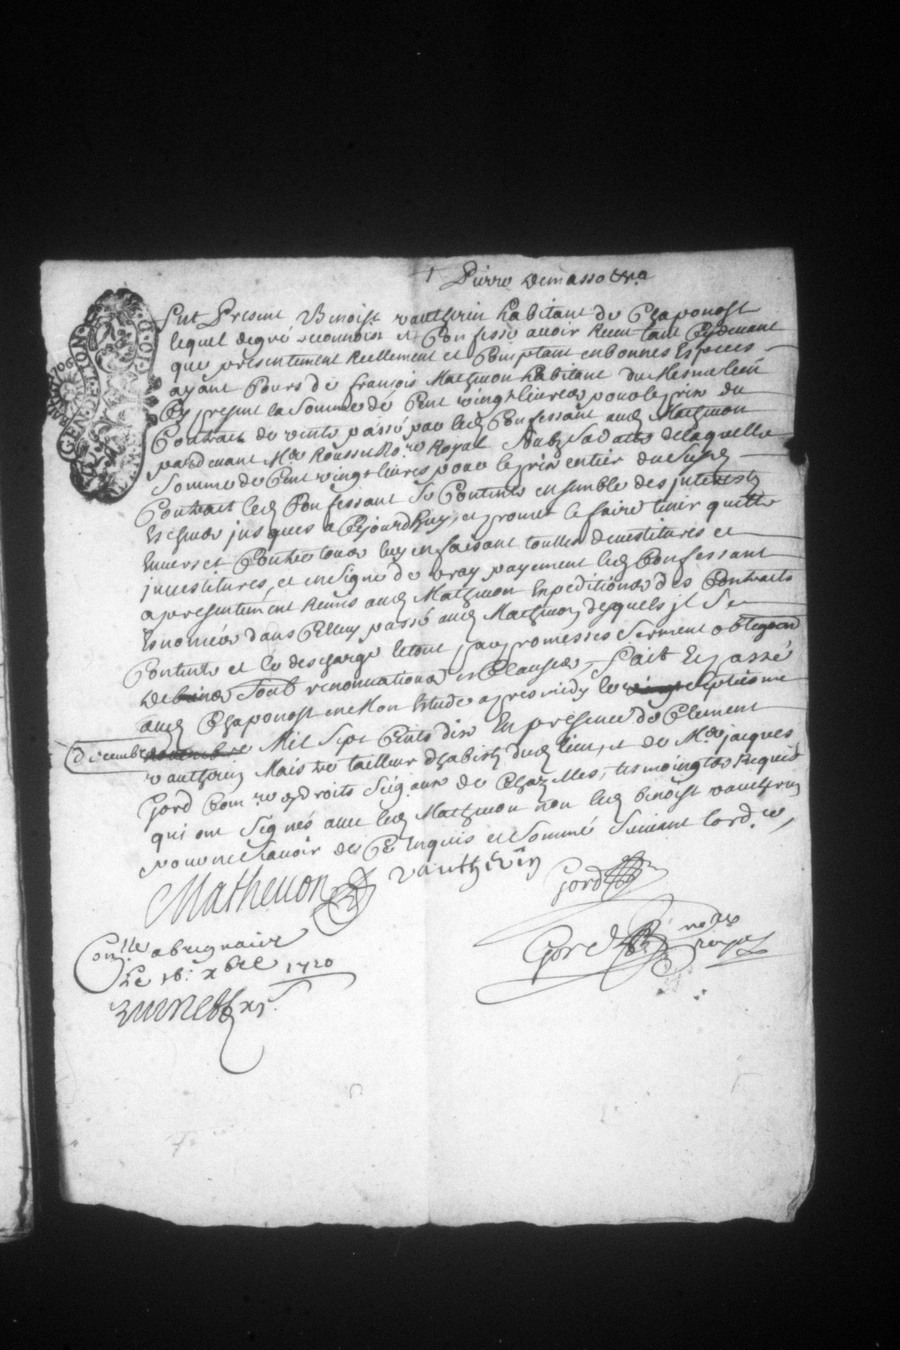 1 Pierre Demasso
Fut Present Benoist vautherin habitant de Chaponost
lequel degré reconnoist et Confesse avoir Receu tant Cydevant
que présentement Reellement et Comptant en bonnes Especes
ayant Cours de françois Mathevon habitant du Mesme lieu
Cy present la Somme de Cent vingt livres pour le prix du
Contract de vente passé par led Confessant aud Mathevon
pardevant Me Roussel No.re Royal Sa datte de laquelle
Somme de Cent vingt livres pour le prix entier du Susd
Contract led Confessant Se Contente ensemble des interests
Escheus jusques a Cejourdhuy, et promet le faire tenir quitte
Envers et Contre tous luy en faisant touttes devestitures et
investitures, et en Signe de vray payement led Confessant
a presentement Remis aud Mathevon Expeditions des Contracts
Esnoncés dans Celluy passé aud Mathevon desquels il Se
Contente et le descharge le tout par promesses Serment obligaon
de Soub renonciations et Clauses, Fait et passé
aud Chaponost en Mon Estude apres midy le Septiesme
decembre Mil Sept Cents dix En presence de Clement
vautherin Maistre tailleur dhabits dud lieu, et de Me jacques
Gord Com.re es droits Seig.aux de Chazelles, tesmoingts Requis
qui ont Signés avec led Mathevon non led benoist vautherin
pour ne Scavoir de Ce Enquis et Sommé Suivant lord.ce,
Mathevon vautherin Gord
Gord no.re royal
Con.lle a brignais
Le 18: xbre 1710